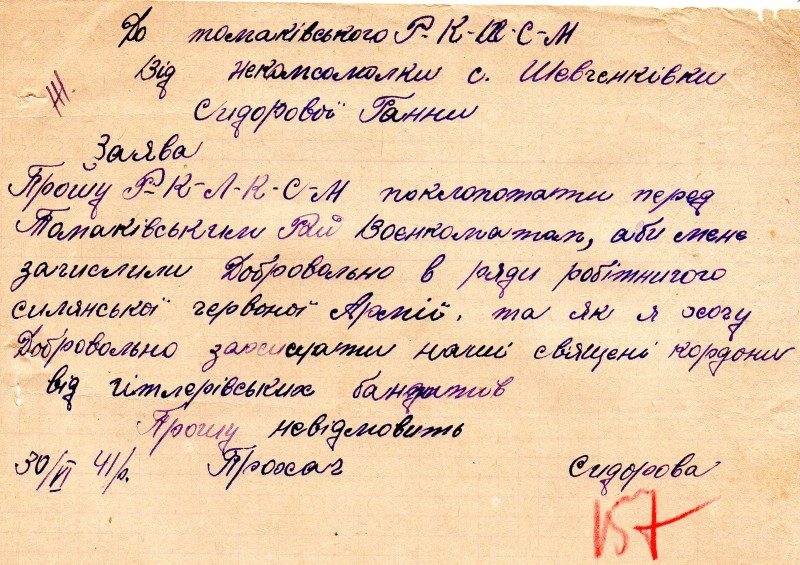 До томаківського Р-К-Л-С-М
Від некомсомолки с. Шевченківки
Сидорової Ганни
Заява
Прошу Р-К-Л-К-С-М поклопотати перед
Томаківським Рай Воєнкоматом, аби мене
зачислили Добровольно в ряди робітничого
силянської червоної Армій, та як я хочу
Добровольно захищати наші священі кордони
від гітлерівських бандитів
Прошу невідмовить
30/VI 41/р. Прохач Сидорова
157